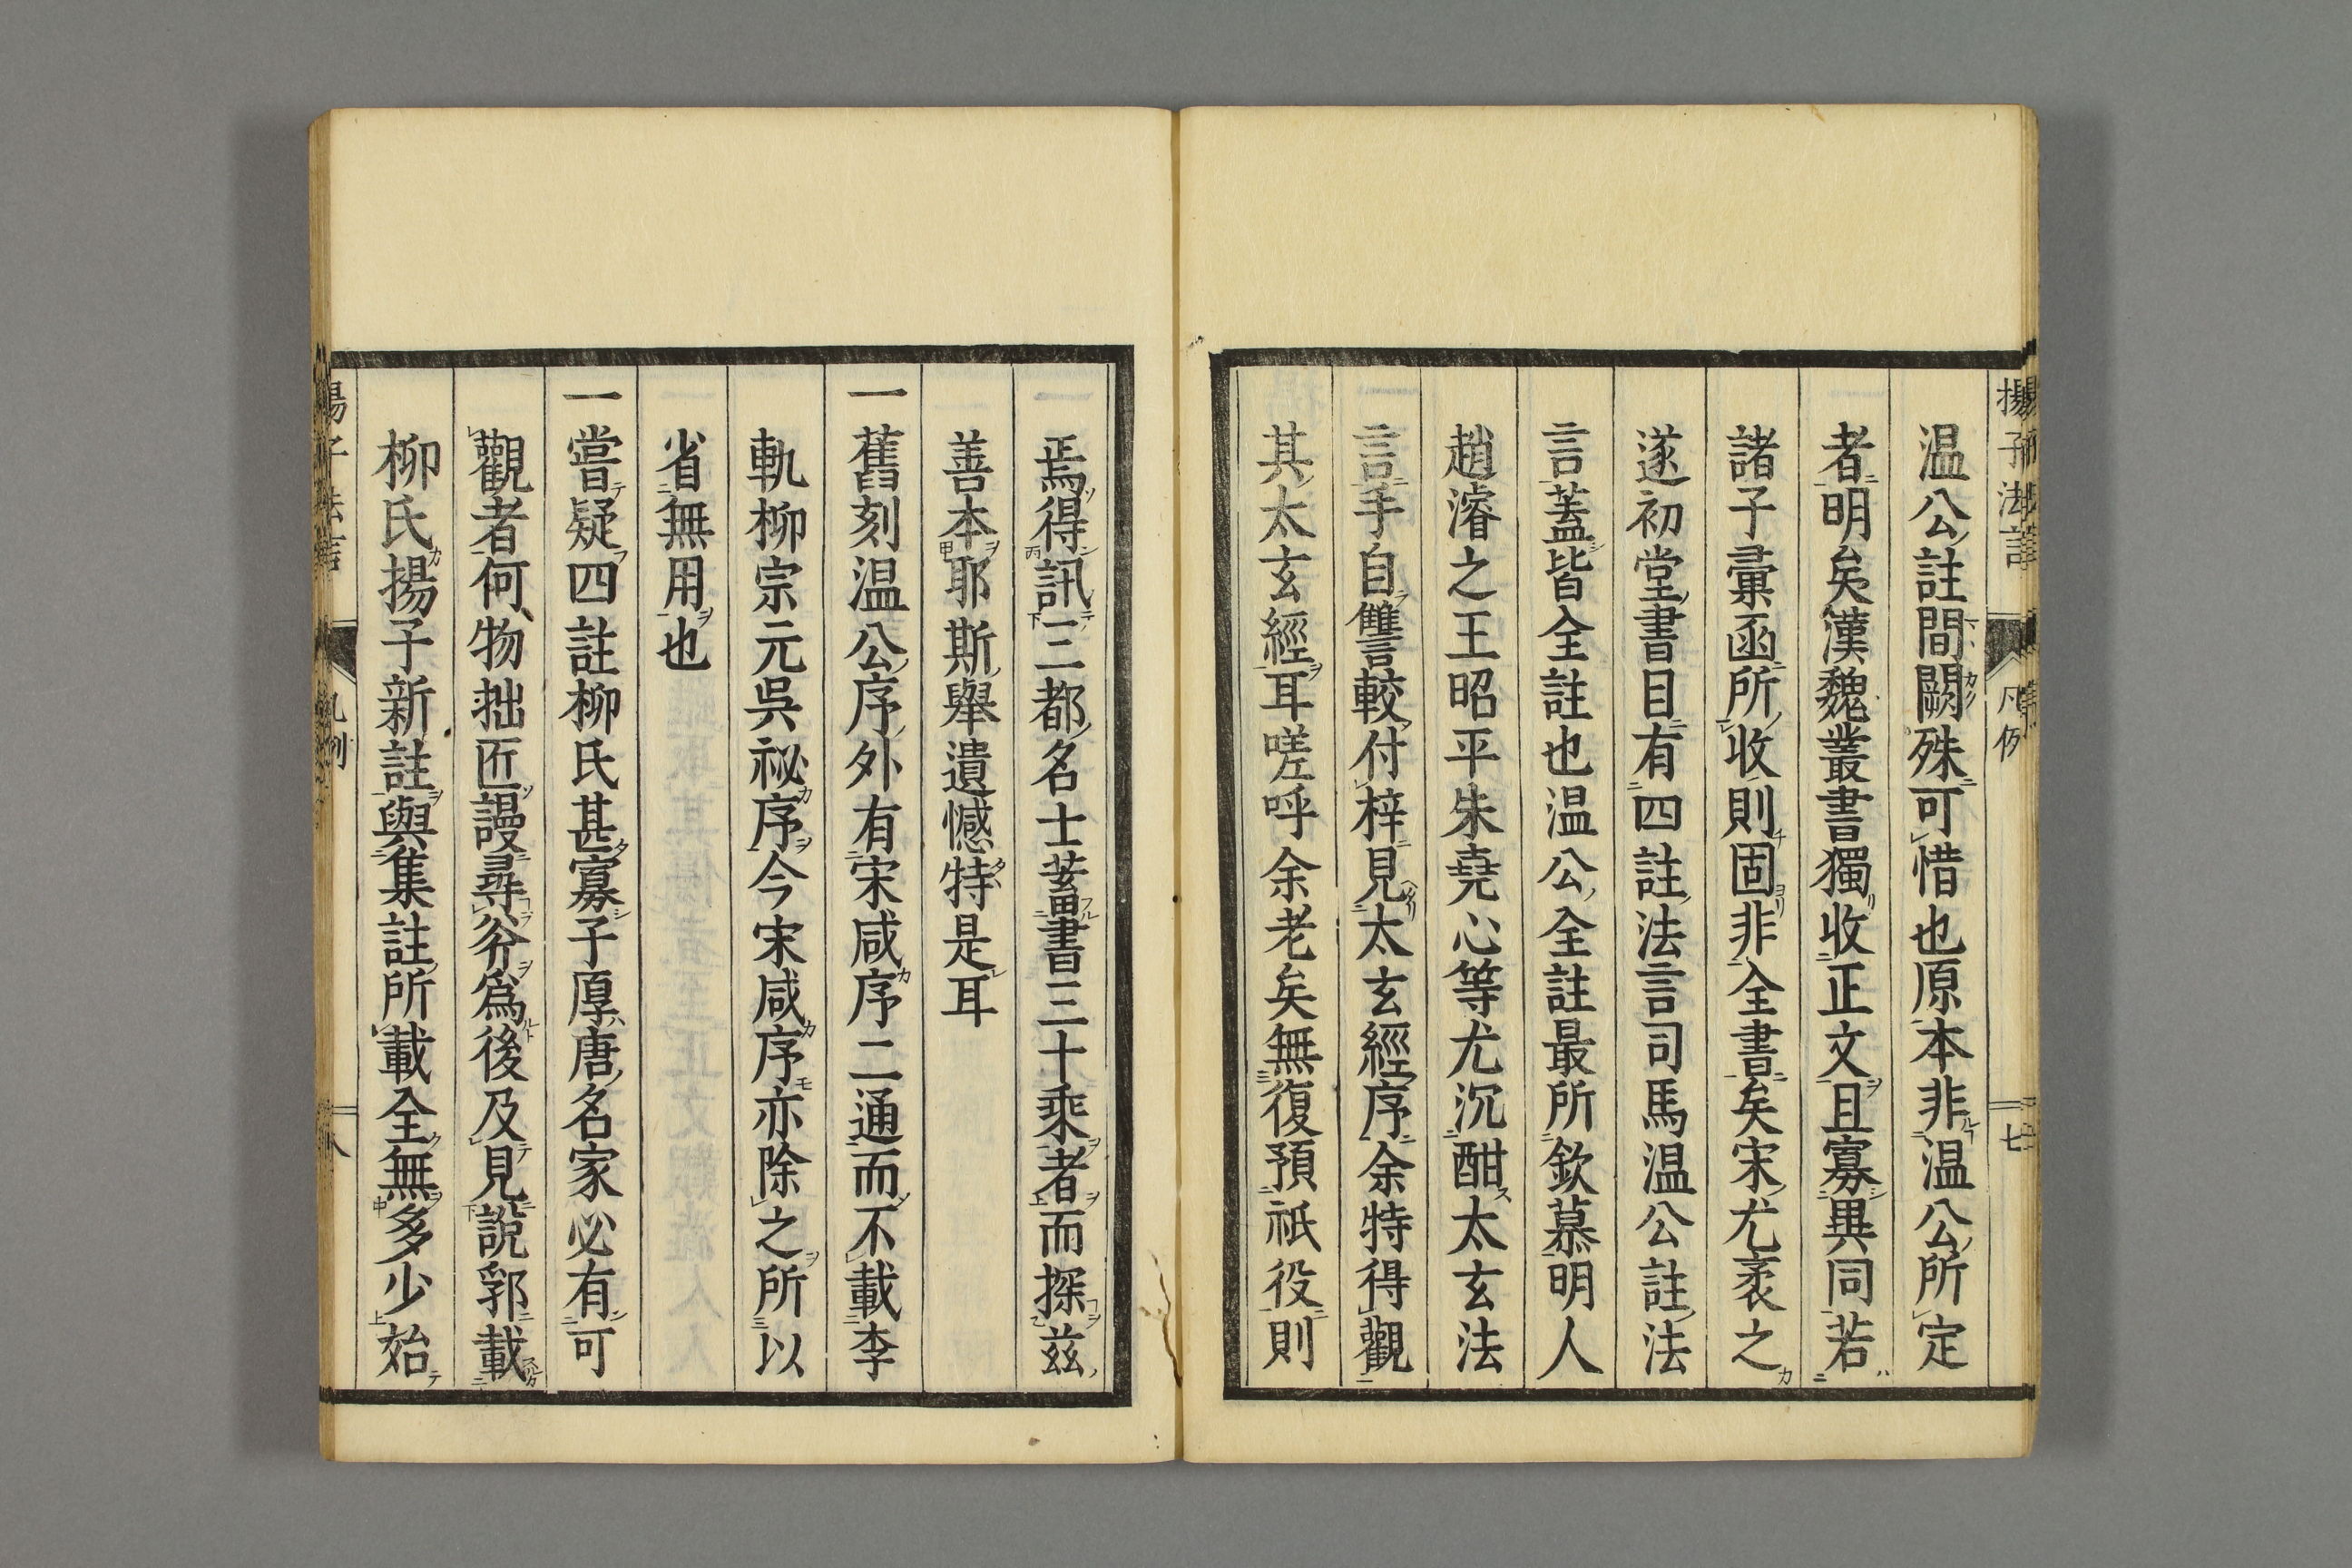 揚子法言 凡例 七
温公註間闕殊可惜也原本非温公所定
者明矣漢魏叢書獨收正文且寡異同若
諸子彚函所收則固非全書矣宋尤袤之
遂初堂書目有四註法言司馬温公註法
言蓋皆全註也温公全註最所欽慕明人
趙濬之王昭平朱堯心等尤沉酣太玄法
言手自讐較付梓見太玄經序余特得觀
其太玄經耳嗟呼余老矣無復預祇役則
焉得訊三都名士蓄書三十乘者而探茲
善本耶斯舉遺憾特是耳
一舊刻温公序外有宋咸序二通而不載李
軌柳宗元吳祕序今宋咸序亦除之所以
省無用也
一嘗疑四註柳氏甚寡子厚唐名家必有可
觀者何物拙匠謾尋爲後及見說郛載
柳氏揚子新註與集註所載全無多少始
揚子法言 凡例 八